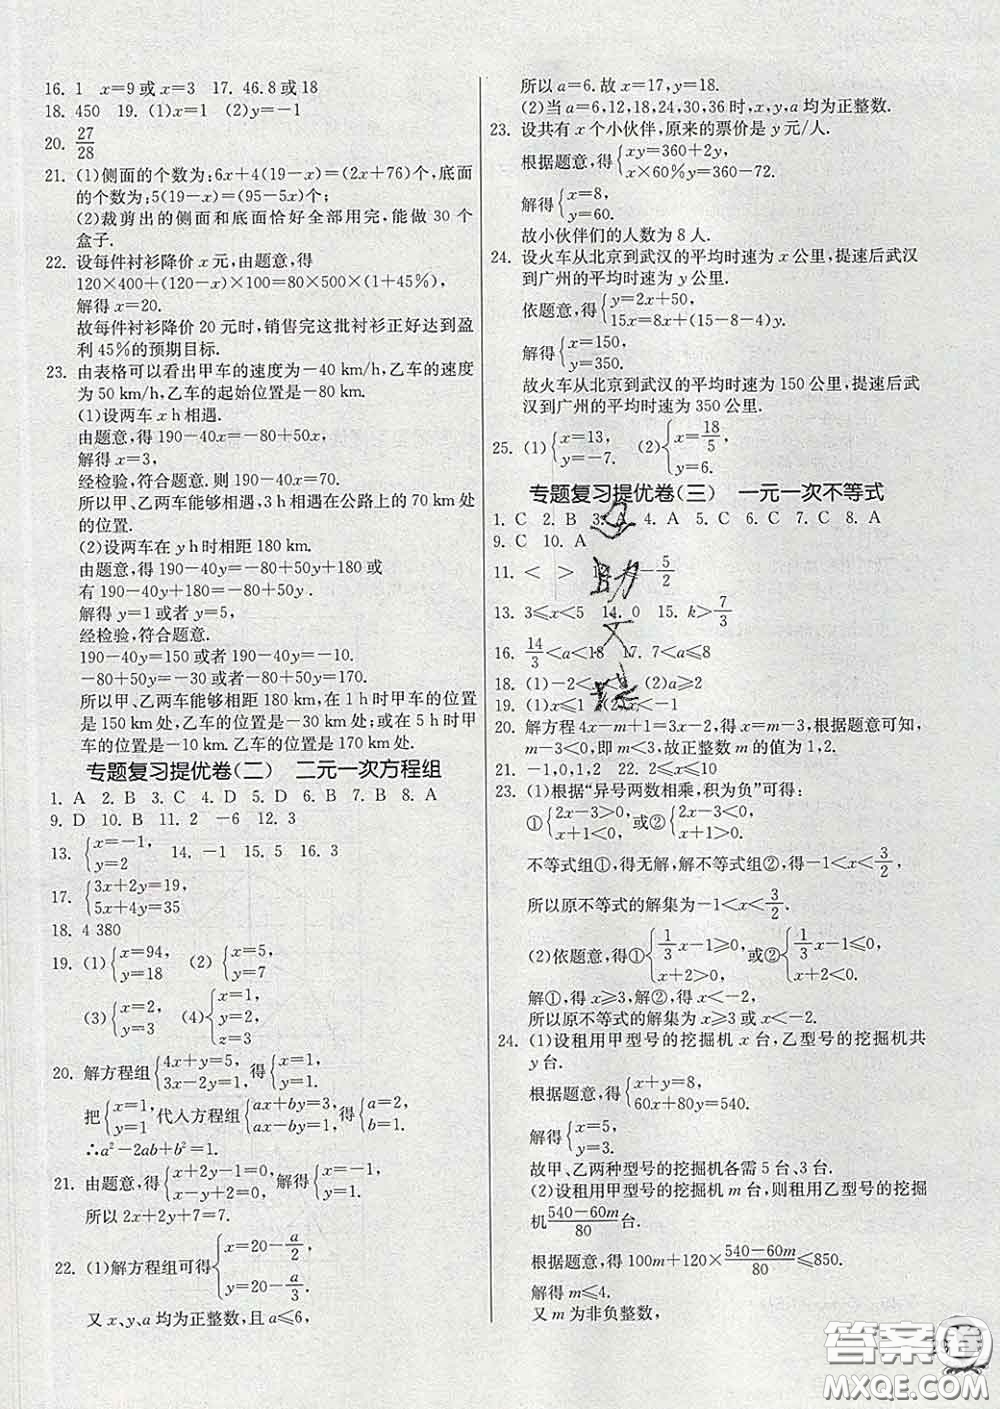 16. 1　x=9或x=3　17. 46.8或18
18. 450　19. (1)x=1　(2)y=−1
20. 27/28
21. (1)侧面的个数为:6x+4(19−x)=(2x+76)个,底面
的个数为:5(19−x)=(95−5x)个;
(2)裁剪出的侧面和底面恰好全部用完,能做30个
盒子.
22. 设每件衬衫降价x元,由题意,得
120×400+(120−x)×100=80×500×(1+45%),
解得x=20.
故每件衬衫降价20元时,销售完这批衬衫正好达到盈
利45%的预期目标.
23. 由表格可以看出甲车的速度为−40 km/h,乙车的速度
为50 km/h,乙车的起始位置是−80 km.
(1)设两车x h相遇.
由题意,得190−40x=−80+50x,
解得x=3,
经检验,符合题意.则190−40x=70.
所以甲、乙两车能够相遇,3 h相遇在公路上的70 km处
的位置.
(2)设两车在y h时相距180 km.
由题意,得190−40y=−80+50y+180或
有190−40y+180=−80+50y
解得y=1或者y=5,
经检验,符合题意.
190−40y=150或者190−40y=−10.
−80+50y=−30或者−80+50y=170.
所以甲、乙两车能够相距180 km,在1 h时甲车的位置
是150 km处,乙车的位置是−30 km处;或在5 h时甲
车的位置是−10 km.乙车的位置是170 km处.
专题复习提优卷(二)　二元一次方程组
1. A　2. B　3. C　4. D　5. D　6. B　7. B　8. A
9. D　10. B　11. 2　−6　12. 3
13. {x=−1, y=2　14. −1　15. 5　16. 3
17. {3x+2y=19, 5x+4y=35
18. 4 380
19. (1){x=94, y=18　(2){x=5, y=7
(3){x=2, y=3　(4){x=1, y=2, z=3
20. 解方程组{4x+y=5, 3x−2y=1,得{x=1, y=1.
把{x=1, y=1代入方程组{ax+by=3, ax−by=1,得{a=2, b=1.
∴a²−2ab+b²=1.
21. 由题意,得{x+2y−1=0, x−y+2=0,解得{x=−1, y=1.
所以2x+2y+7=7.
22. (1)解方程组可得{x=20−a/2, y=20−a/3.
又x、y、a均为正整数,且a≤6,
所以a=6.故x=17,y=18.
(2)当a=6,12,18,24,30,36时,x,y,a均为正整数.
23. 设共有x个小伙伴,原来的票价是y元/人.
根据题意,得{xy=360+2y, x×60%y=360−72.
解得{x=8, y=60.
故小伙伴们的人数为8人.
24. 设火车从北京到武汉的平均时速为x公里,提速后武汉
到广州的平均时速为y公里.
依题意,得{y=2x+50, 15x=8x+(15−8−4)y.
解得{x=150, y=350.
故火车从北京到武汉的平均时速为150公里,提速后武
汉到广州的平均时速为350公里.
25. (1){x=13, y=−7.　(2){x=18/5, y=6.
专题复习提优卷(三)　一元一次不等式
1. C　2. B　3. A　4. A　5. C　6. C　7. C　8. A
9. C　10. A
11. <　>　<−5/2
13. 3≤x<5　14. 0　15. k>7/3
16. 14/3<a<18　17. 7<a≤8
18. (1)−2<　(2)a≥2
19. (1)x≤1　(2)x<−1
20. 解方程4x−m+1=3x−2,得x=m−3,根据题意可知,
m−3<0,即m<3,故正整数m的值为1,2.
21. −1,0,1,2　22. 2≤x<4
23. (1)根据“异号两数相乘,积为负”可得:
①{2x−3>0, x+1<0,或②{2x−3<0, x+1>0.
不等式组①,得无解,解不等式组②,得−1<x<3/2,
所以原不等式的解集为−1<x<3/2.
(2)依题意,得①{1/3x−1≥0, x+2>0;或②{1/3x−1≤0, x+2<0,
解①,得x≥3,解②,得x<−2.
所以原不等式的解集为x≥3或x<−2.
24. (1)设租用甲型号的挖掘机x台,乙型号的挖掘机共
y台.
根据题意,得{x+y=8, 60x+80y=540.
解得{x=5, y=3.
故甲、乙两种型号的挖掘机各需5台、3台.
(2)设租用甲型号的挖掘机m台,则租用乙型号的挖掘
机(540−60m)/80台.
根据题意,得100m+120×(540−60m)/80≤850.
解得m≤4.
又m为非负整数,
答案圈
MXQE.COM